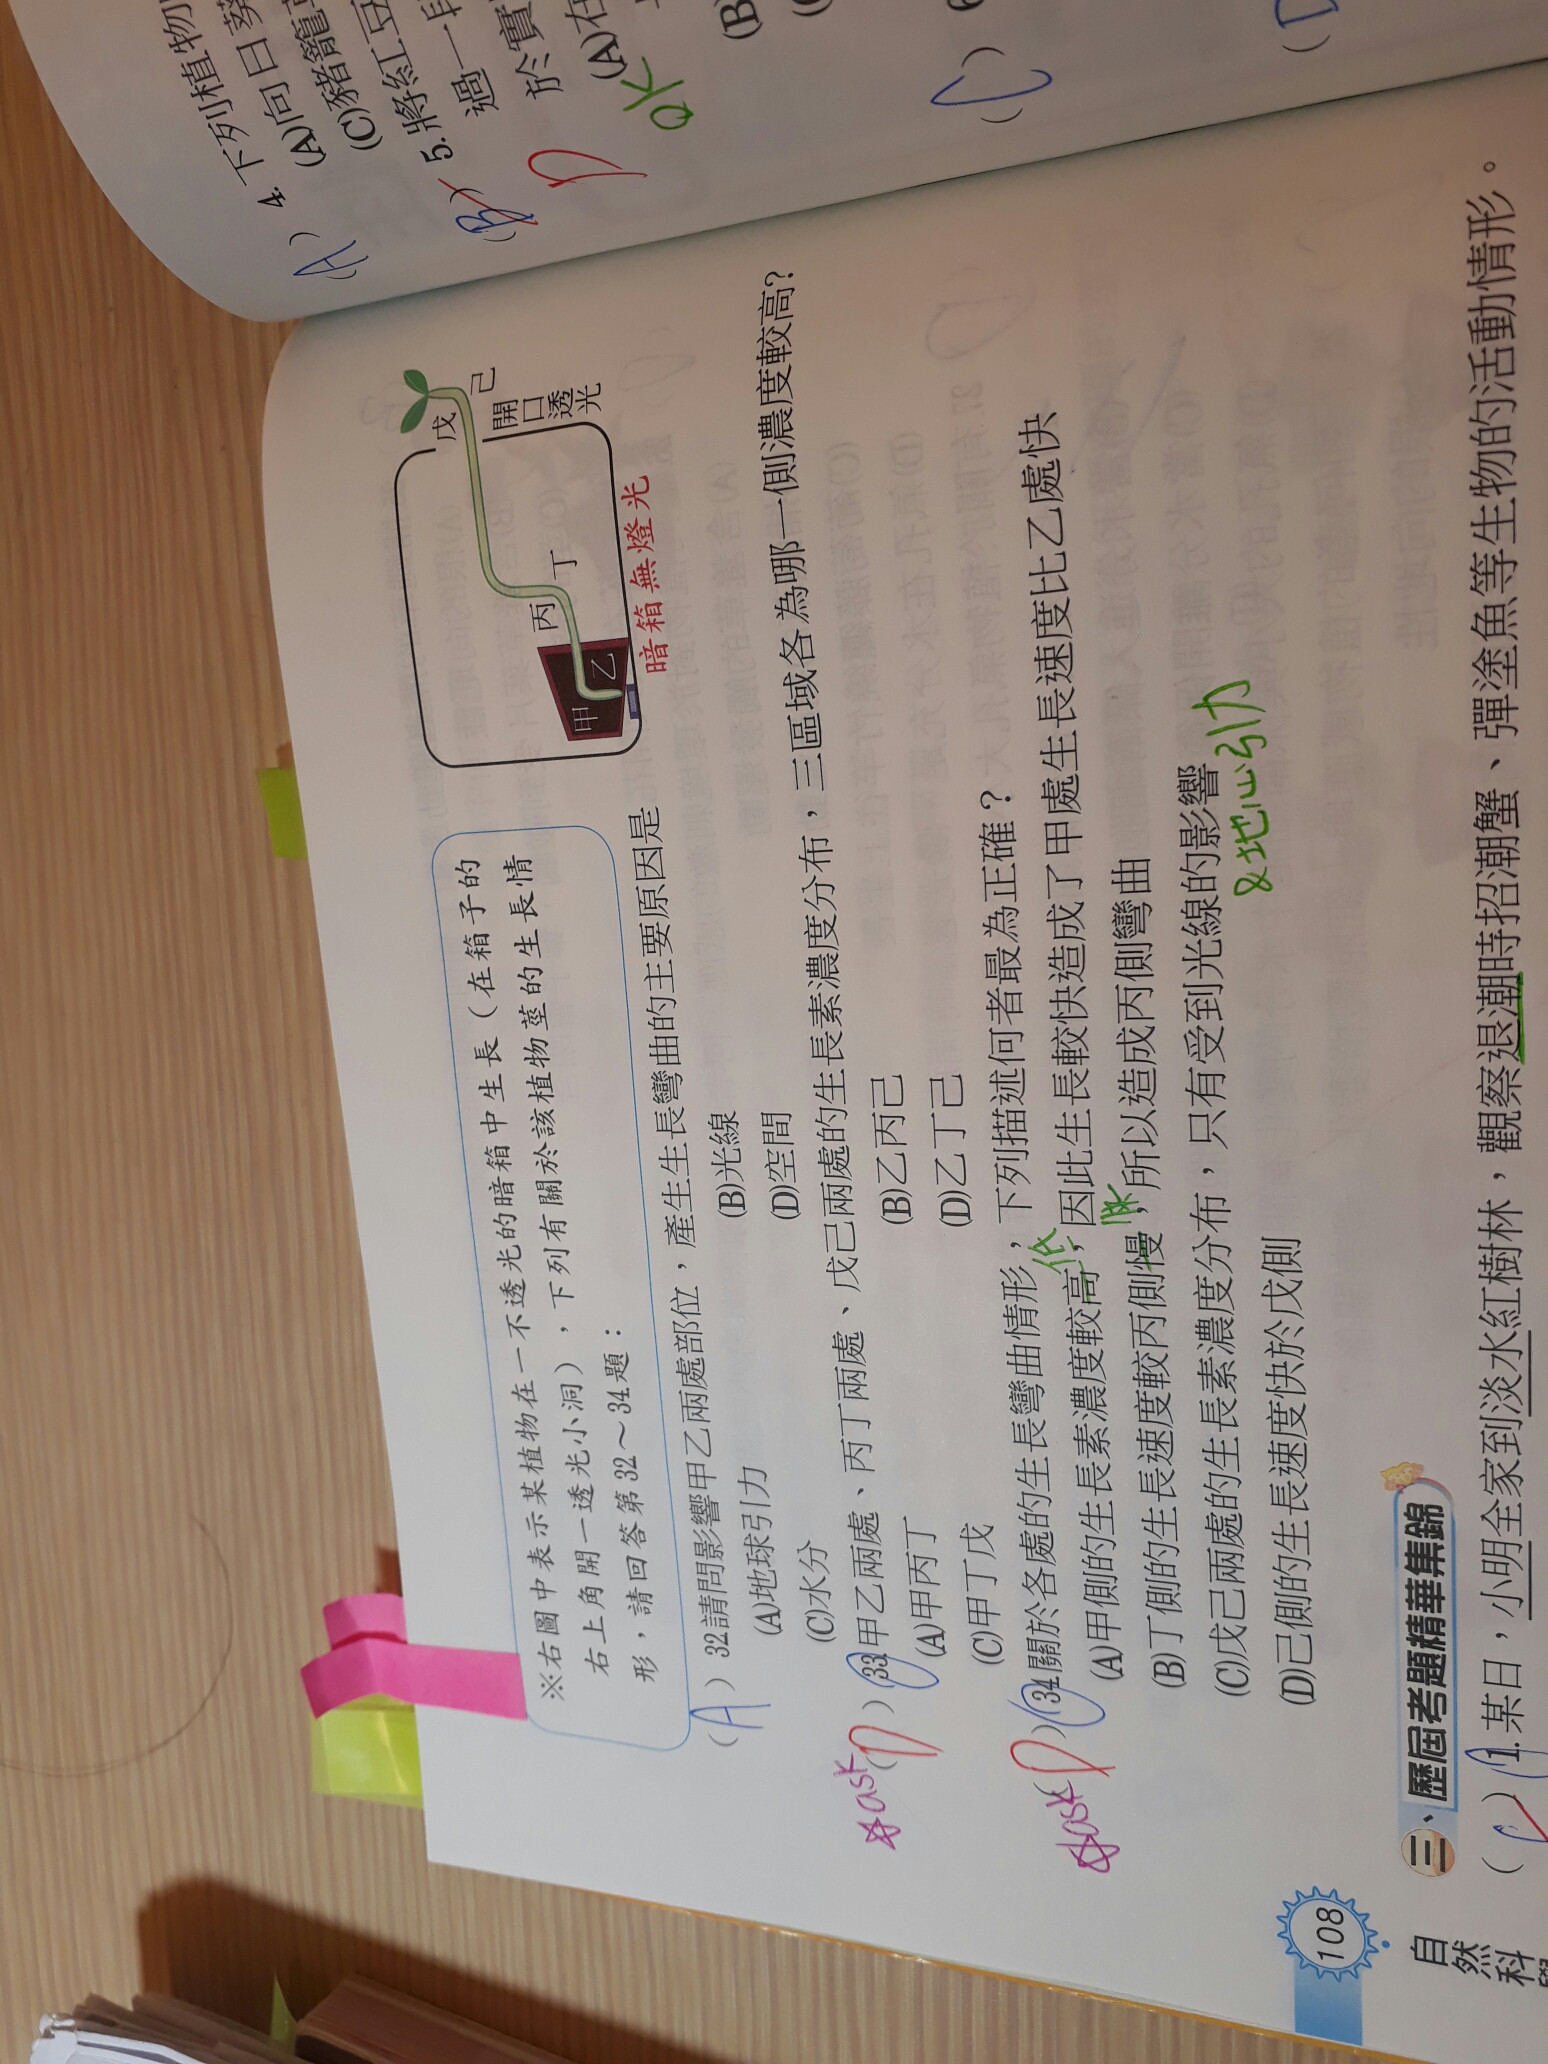 ※右圖中表示某植物在一不透光的暗箱中生長(在箱子的
右上角開一透光小洞),下列有關於該植物莖的生長情
形,請回答第32~34題:
甲
乙
丙
丁
戊
己
開口透光
暗箱無燈光
(A) 32.請問影響甲乙兩處部位,產生生長彎曲的主要原因是
(A)地球引力 (B)光線
(C)水分 (D)空間
☆ask (D) 33.甲乙兩處、丙丁兩處、戊己兩處的生長素濃度分布,三區域各為哪一側濃度較高?
(A)甲丙丁 (B)乙丙己
(C)甲丁戊 (D)乙丁己
☆ask (D) 34.關於各處的生長彎曲情形,下列描述何者最為正確?
(A)甲側的生長素濃度較高,因此生長較快造成了甲處生長速度比乙處快
低
(B)丁側的生長速度較丙側慢,所以造成丙側彎曲
快
(C)戊己兩處的生長素濃度分布,只有受到光線的影響
&地心引力
(D)己側的生長速度快於戊側
三、歷屆考題精華集錦
( ) 1.某日,小明全家到淡水紅樹林,觀察退潮時招潮蟹、彈塗魚等生物的活動情形。
108
自然科學
(A) 4.下列植物
(A)向日葵
(C)豬籠
(B) 5.將紅豆
D
過一段
於實
(A)在
QK
(B)
(C)
(D